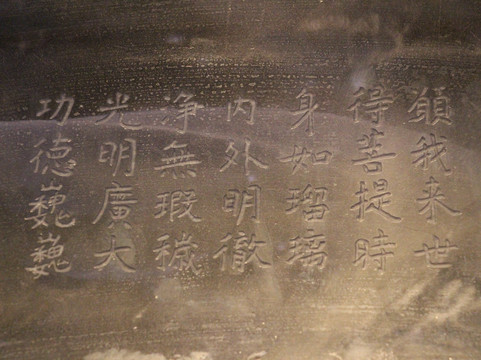 願我来世
得菩提時
身如瑠璃
内外明徹
浄無瑕穢
光明廣大
功德巍巍